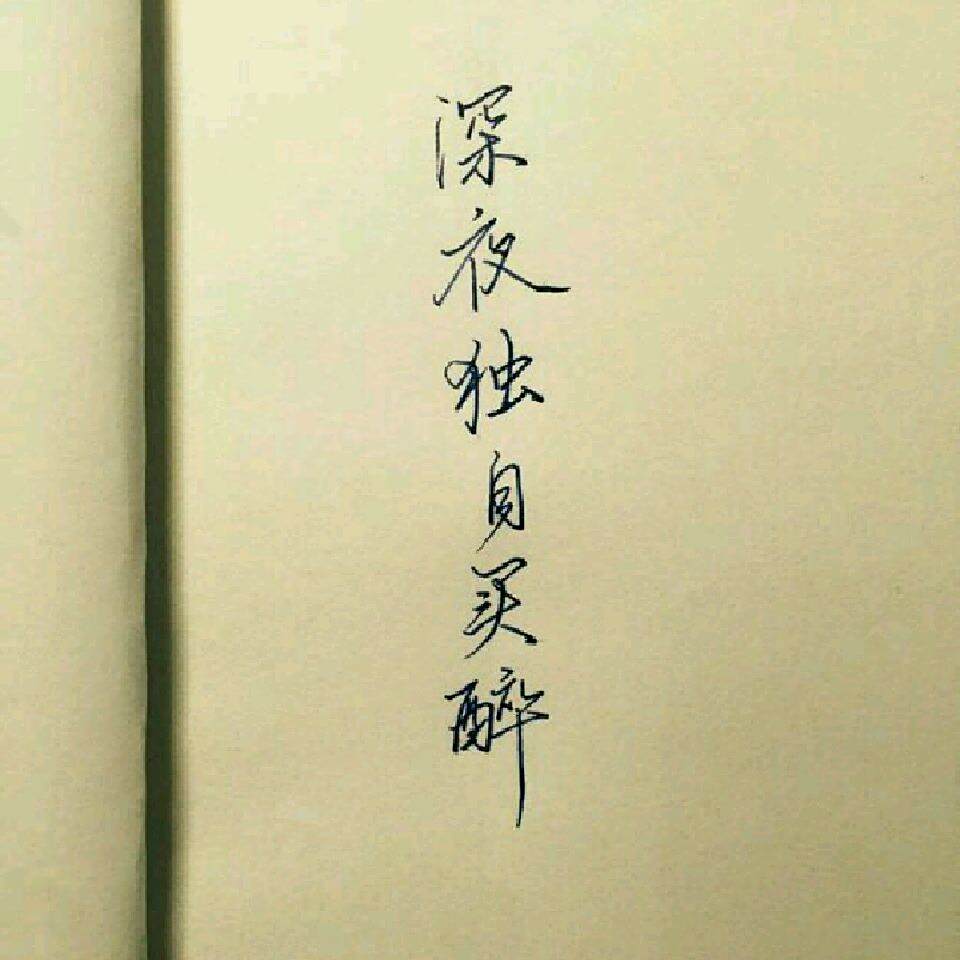 深夜独自买醉